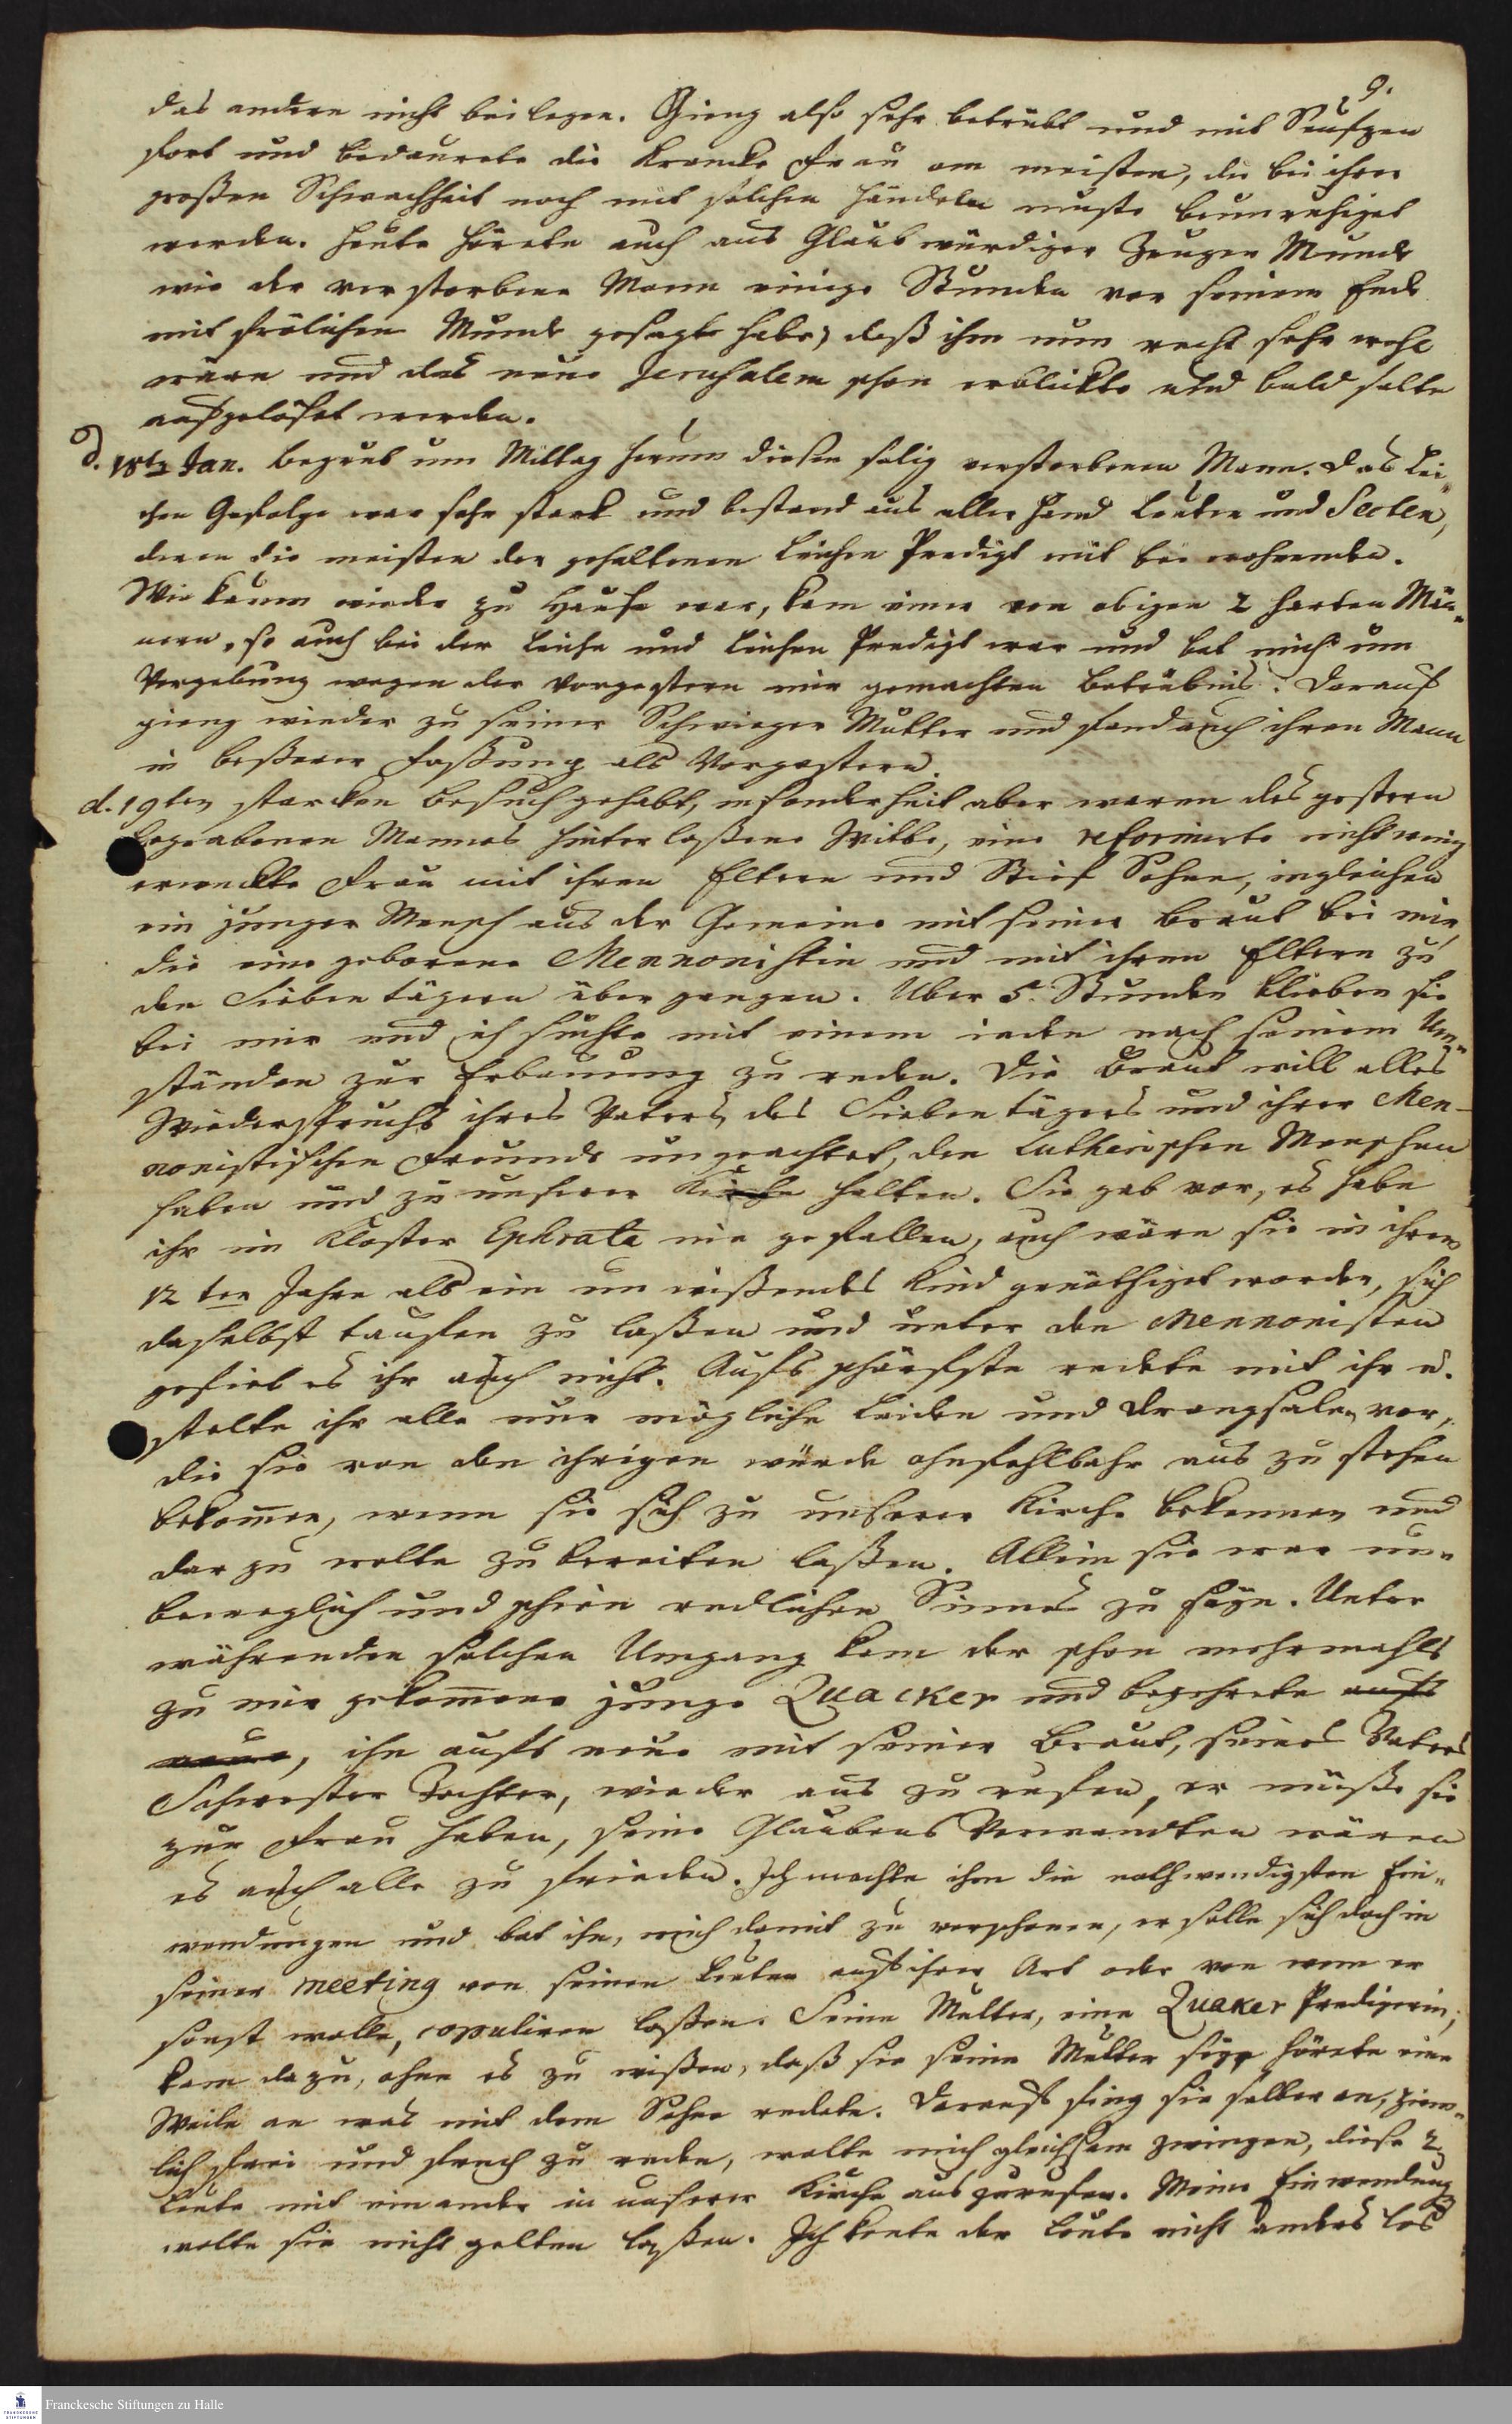 9.
das andere nicht beilegen. Gieng also sehr betrübt und mit Seufzen
fort und bedaurete die krancke Frau am meisten, die bei ihrer
großen Schwachheit noch mit solchen Händeln muste beunruhiget
werden. Heute hörete auch aus Glaubwürdiger Zeugen Munde
wie der verstorbene Mann einige Stunden vor seinem Ende
mit frölichem Munde gesagt habe, daß ihm nun recht sehr wohl
wäre und das neue Jerusalem schon erblickte und bald solte
aufgelöset werden.
d. 18ten Jan. begrub um Mittag herum diesen selig verstorbenen Mann. Das Lei-
chen Gefolge war sehr starck und bestand aus aller Hand Leuten und Secten,
deren die meisten der gehaltenen Leichen Predigt mit bei wohneten.
Wie kaum wieder zu Hause war, kam einer von obigen 2 harten Män-
nern, so auch bei der Leiche und Leichen Predigt war und bat mich um
Vergebung wegen der vorgestern mir gemachten Betrübnis. Darauf
gieng wieder zu seiner Schwieger Mutter und fand auch ihren Mann
in beßerer Faßung als Vorgestern.
d. 19ten starcken Besuch gehabt, insonderheit aber waren des gestern
begrabenen Mannes hinterlaßene Witbe, eine reformirte nicht wenig
erweckte Frau mit ihren Eltern und Stief Sohne, ingleichen
ein junger Mensch aus der Gemeine mit seiner Braut bei mir,
die eine geborene Mennonistin und mit ihren Eltern zu
den Siebentägern über gangen. Uber 5. Stunden blieben sie
bei mir und ich suchte mit einem ieden nach seinen Um-
ständen zur Erbauung zu reden. Die Braut will alles
Wiederspruchs ihres Vaters, des Siebentägers und ihrer Men-
nonistischen Freunde ungeachtet, den Lutherischen Menschen
haben und zu unserer Kirche halten. Sie gab vor, es habe
ihr im Kloster Ephrata nie gefallen, auch wäre sie in ihrem
12ten Jahre als ein unwißendes Kind genöthiget worden, sich
daselbst tauffen zu laßen und unter den Mennonisten
gefiel es ihr auch nicht. Aufs schärfste redete mit ihr u.
stelte ihr alle nur mögliche Leiden und Drangsalen vor,
die sie von den ihrigen würde ohnfehlbahr aus zu stehen
bekom̅en, wenn sie sich zu unserer Kirche bekennen und
dar zu wolte zubereiten laßen. Allein sie war un-
beweglich und schien redlichen Sinnes zu seyn. Unter
währenden solchen Umgang kam der schon mehrmahls
zu mir gekom̅ene junge Quacker und begehrete aufs
neue, ihn aufs neue mit seiner Braut, seines Vaters
Schwester Tochter, wieder aus zu rufen, er müße sie
zur Frau haben, seine Glaubens Verwandten wären
es auch alle zu frieden. Ich machte ihm die nothwendigsten Ein-
wendungen und bat ihn, mich damit zu verschonen, er solle sich doch in
seiner meeting von seinen Leuten auf ihre Art oder von wem er
sonst wolle, copuliren laßen. Seine Mutter, eine Quaker Predigerin,
kam dazu, ohne es zu wißen, daß sie seine Mutter seye hörete eine
Weile an was mit dem Sohne redete. Darauf fing sie selber an, ziem-
lich frei und frech zu reden, wolte mich gleichsam zwingen, diese 2
Leute mit einander in unserer Kirche auszurufen. Meine Einwendung
wolte sie nicht gelten laßen. Ich konte der Leute nicht anders los
Franckesche Stiftungen zu Halle